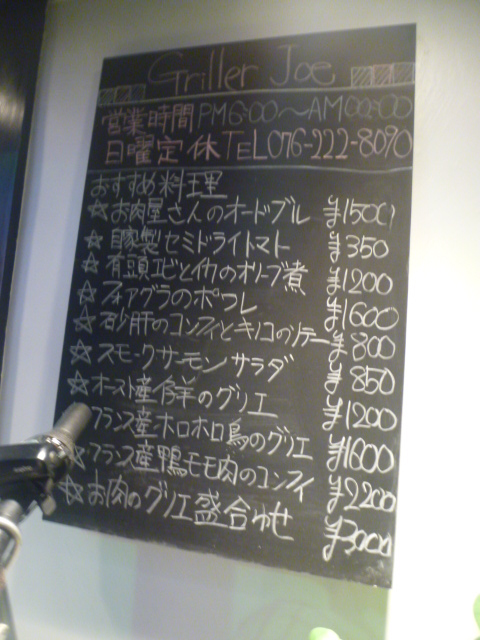 Griller Joe
営業時間 PM6:00～AM00:00
日曜定休 TEL076-222-8090
おすすめ料理
☆お肉屋さんのオードブル ¥1500
☆自家製セミドライトマト ¥350
☆有頭エビとイカのオリーブ煮 ¥1200
☆フォアグラのポワレ ¥1600
☆砂肝のコンフィとキノコのソテー ¥800
☆スモークサーモンサラダ ¥850
☆オースト産仔羊のグリエ ¥1200
フランス産ホロホロ鳥のグリエ ¥1600
☆フランス産鴨モモ肉のコンフィ ¥2200
☆お肉のグリエ盛合わせ ¥3000